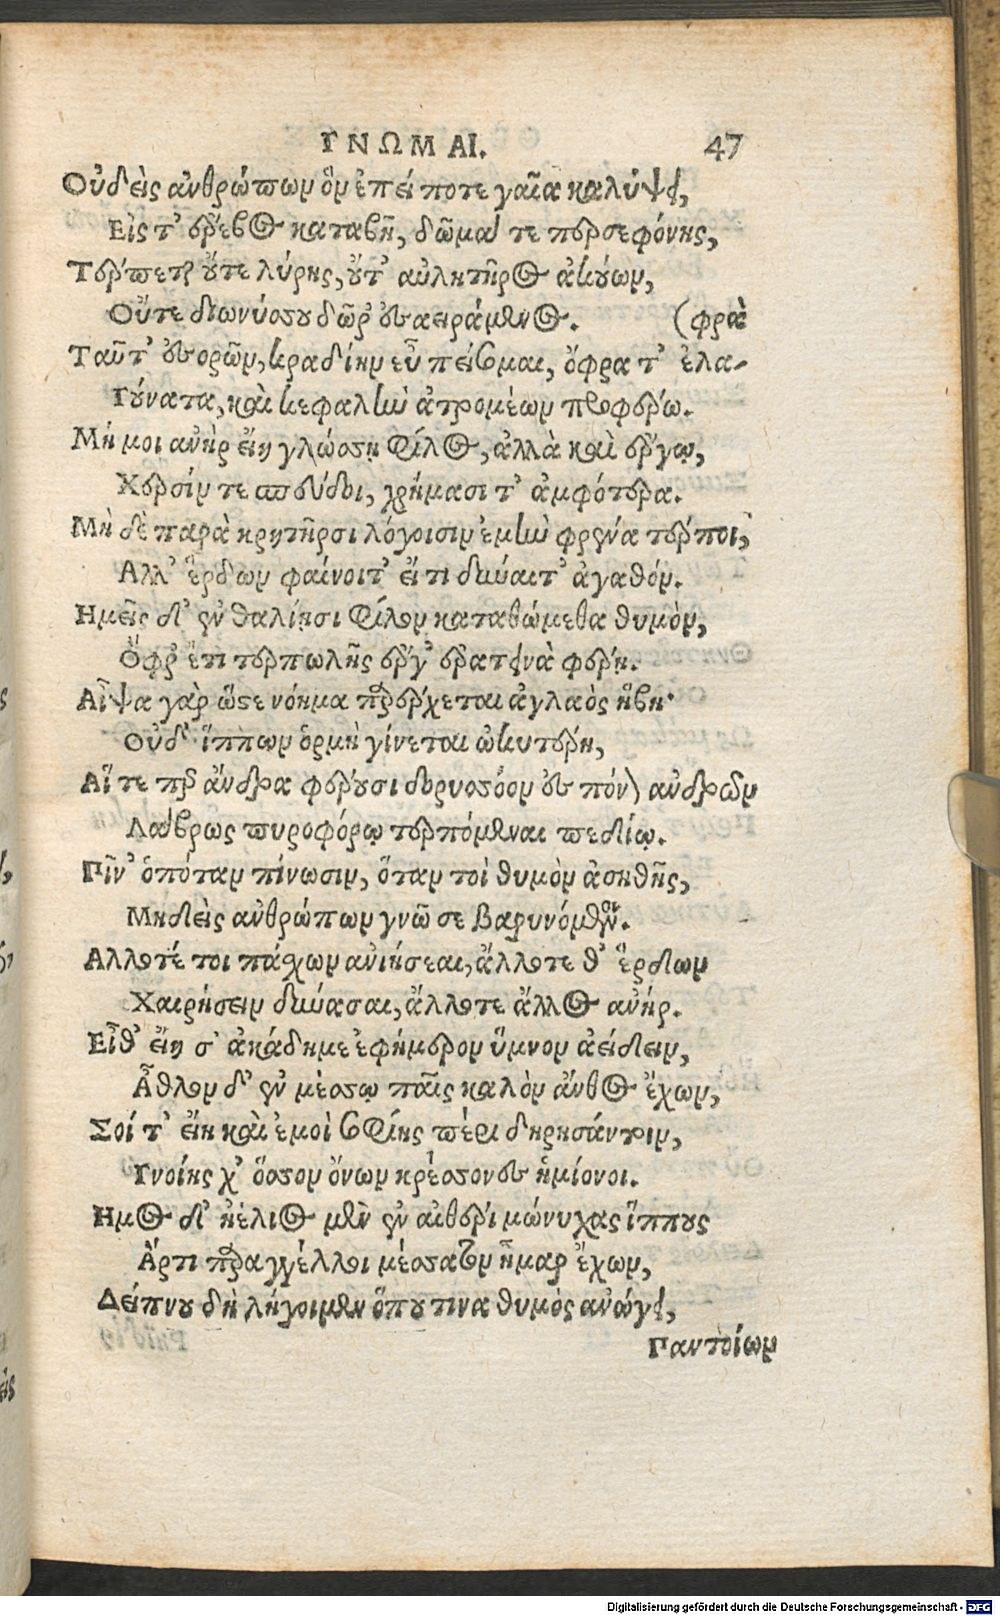 ΓΝΩΜΑΙ. 47
Οὐδεὶς ἀνθρώπων ὃν ἐπεί ποτε γαῖα καλύψῃ,
Εἰς τ' ἔρεβος καταβῇ, δῶμά τε περσεφόνης,
Τέρπεται οὔτε λύρης, οὔτ' αὐλητῆρος ἀκούων,
Οὔτε διωνύσου δῶρ' ἐσαειράμενος. (φρὰ
Ταῦτ' ἐσορῶν, κραδίην εὖ πείσομαι, ὄφρα τ' ἐλα-
Γούνατα, καὶ κεφαλὴν ἀτρομέων προφέρω.
Μή μοι ἀνὴρ εἴη γλώσσῃ φίλος, ἀλλὰ καὶ ἔργῳ,
Χερσίν τε σπεύδοι, χρήμασι τ' ἀμφότερα.
Μὴ δὲ παρὰ κρητῆρσι λόγοισιν ἐμὴν φρένα τέρποι,
Αλλ' ἔρδων φαίνοιτ' εἴ τι δύναιτ' ἀγαθόν.
Ημεῖς δ' ἐν θαλίῃσι φίλον καταθώμεθα θυμὸν,
Ὄφρ' ἔτι τερπωλῆς ἔργ' ἐρατεινὰ φέρῃ.
Αἶψα γὰρ ὥστε νόημα παρέρχεται ἀγλαὸς ἥβη·
Οὐδ' ἵππων ὁρμὴ γίνεται ὠκυτέρη,
Αἵ τε περ ἄνδρα φέρουσι δορυσσόον ἐς πόνον ἀνδρῶν
Λάβρως πυροφόρῳ τερπόμεναι πεδίῳ.
Πῖν' ὁπόταν πίνωσιν, ὅταν τοὶ θυμὸν ἀσηθῇς,
Μηδεὶς ἀνθρώπων γνῷ σε βαρυνόμενον.
Αλλοτέ τοι πάσχων ἀνιήσεαι, ἄλλοτε θ' ἔρδων
Χαιρήσειν δύνασαι, ἄλλοτε ἄλλος ἀνήρ.
Εἶθ' εἴη σ' ἀκάδημε ἐφήμερον ὕμνον ἀείδειν,
Ἆθλον δ' ἐν μέσσῳ παῖς καλὸν ἄνθος ἔχων,
Σοί τ' εἴη καὶ ἐμοὶ σοφίης πέρι δηρησάντοιν,
Γνοίης χ' ὅσσον ὄνων κρέσσονες ἡμίονοι.
Ημος δ' ἠέλιος μὲν ἐν αἰθέρι μώνυχας ἵππους
Ἄρτι παραγγέλλοι μέσσατον ἦμαρ ἔχων,
Δείπνου δὴ λήγοιμεν ὅπου τινα θυμὸς ἀνώγει,
Παντοίων
Digitalisierung gefördert durch die Deutsche Forschungsgemeinschaft - DFG